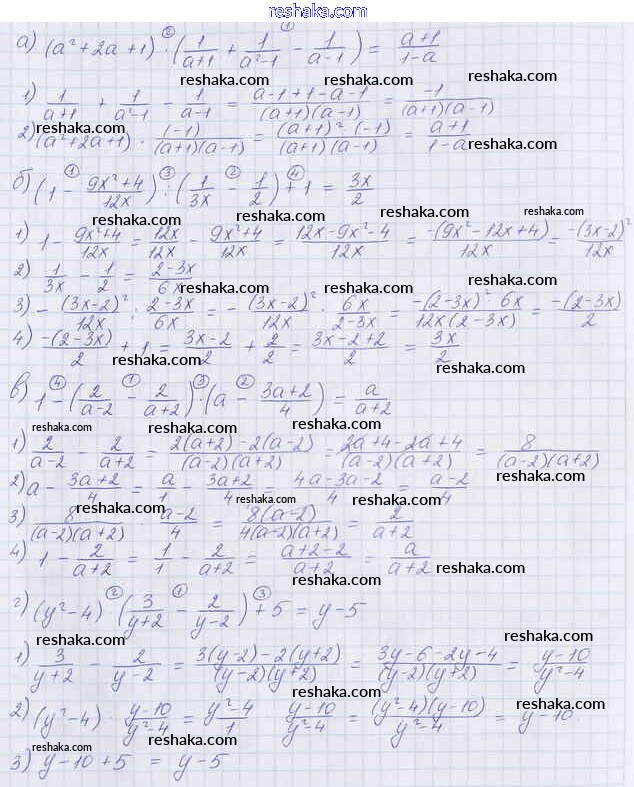 reshaka.com
а) (a²+2a+1) · (1/(a+1) + 1/(a²-1) - 1/(a-1)) = (a+1)/(1-a)
reshaka.com reshaka.com
1) 1/(a+1) + 1/(a²-1) - 1/(a-1) = (a-1+1-a-1)/((a+1)(a-1)) = -1/((a+1)(a-1))
reshaka.com reshaka.com
2) (a²+2a+1) · (-1)/((a+1)(a-1)) = ((a+1)² (-1))/((a+1)(a-1)) = (a+1)/(1-a)
reshaka.com
б) (1 - (9x²+4)/12x) : (1/3x - 1/2) + 1 = 3x/2
reshaka.com reshaka.com reshaka.com
1) 1 - (9x²+4)/12x = 12x/12x - (9x²+4)/12x = (12x-9x²-4)/12x = -(9x²-12x+4)/12x = -(3x-2)²/12x
reshaka.com reshaka.com
2) 1/3x - 1/2 = (2-3x)/6x
reshaka.com reshaka.com
3) - (3x-2)²/12x : (2-3x)/6x = - (3x-2)²/12x · 6x/(2-3x) = -(2-3x)² 6x/12x(2-3x) = -(2-3x)/2
4) -(2-3x)/2 + 1 = (3x-2)/2 + 2/2 = (3x-2+2)/2 = 3x/2
reshaka.com reshaka.com
в) 1 - (2/(a-2) - 2/(a+2)) · (a - (3a+2)/4) = a/(a+2)
reshaka.com reshaka.com reshaka.com
1) 2/(a-2) - 2/(a+2) = (2(a+2)-2(a-2))/((a-2)(a+2)) = (2a+4-2a+4)/((a-2)(a+2)) = 8/((a-2)(a+2))
reshaka.com
2) a - (3a+2)/4 = a/1 - (3a+2)/4 = (4a-3a-2)/4 = (a-2)/4
reshaka.com reshaka.com reshaka.com
3) 8/((a-2)(a+2)) · (a-2)/4 = 8(a-2)/(4(a-2)(a+2)) = 2/(a+2)
4) 1 - 2/(a+2) = 1/1 - 2/(a+2) = (a+2-2)/(a+2) = a/(a+2)
reshaka.com reshaka.com
г) (y²-4) (3/(y+2) - 2/(y-2)) + 5 = y-5
reshaka.com reshaka.com
1) 3/(y+2) - 2/(y-2) = (3(y-2)-2(y+2))/((y-2)(y+2)) = (3y-6-2y-4)/((y-2)(y+2)) = (y-10)/(y²-4)
reshaka.com reshaka.com
2) (y²-4) · (y-10)/(y²-4) = (y²-4)/1 (y-10)/(y²-4) = (y²-4)(y-10)/(y²-4) = y-10
reshaka.com reshaka.com reshaka.com
3) y-10+5 = y-5
reshaka.com